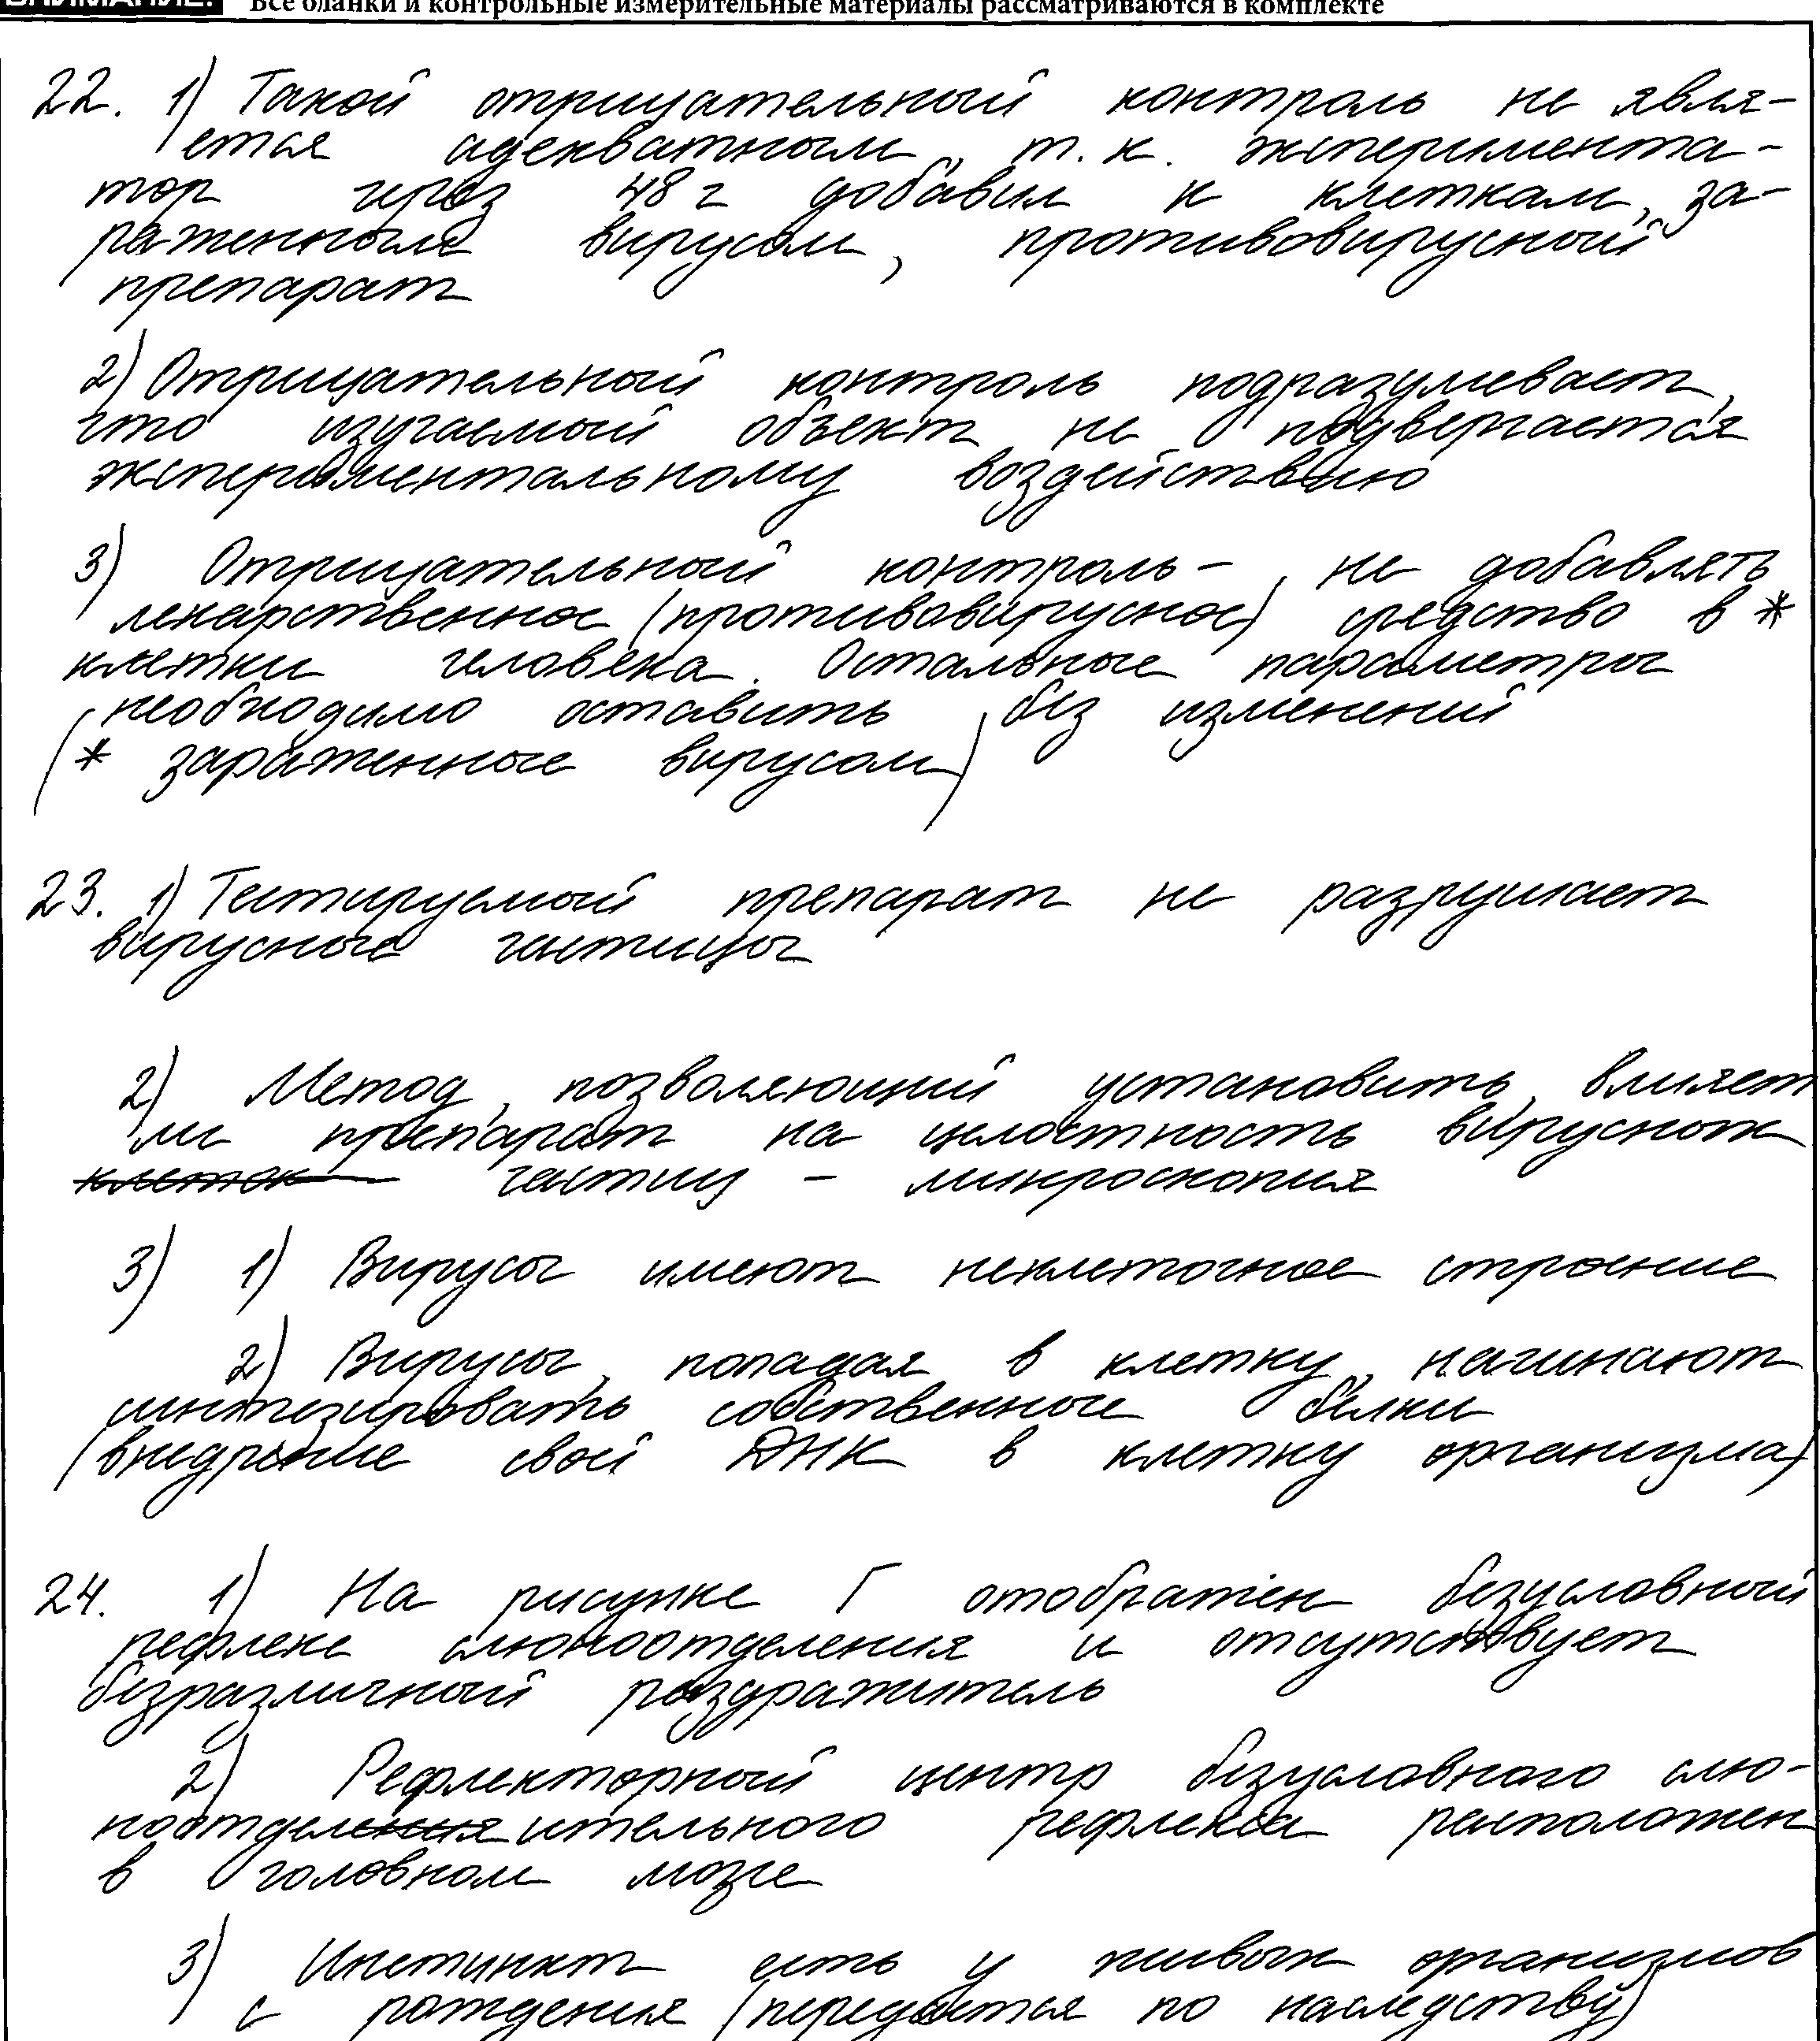 ВНИМАНИЕ! Все бланки и контрольные измерительные материалы рассматриваются в комплекте
22. 1) Такой отрицательный контроль не явля-
ется адекватным, т.к. экспериментa-
тор через 48 г добавил к клеткам, за-
раженным вирусом, противовирусный
препарат
2) Отрицательный контроль подразумевает,
что изучаемый объект не подвергается
экспериментальному воздействию
3) Отрицательный контроль - не добавлять
лекарственное (противовирусное) средство в *
клетки человека. Остальные параметры
необходимо оставить без изменений
(* зараженные вирусом)
23. 1) Тестируемый препарат не разрушает
вирусные частицы
2) Метод, позволяющий установить, влияет
ли препарат на целостность вирусных
клеток частиц - микроскопия
3) 1) Вирусы имеют неклеточное строение
2) Вирусы, попадая в клетку, начинают
синтезировать собственные белки
(внедрение свой ДНК в клетку организма)
24. 1) На рисунке Г отображен безусловный
рефлекс слюноотделения и отсутствует
безразличный раздражитель
2) Рефлекторный центр безусловного слю-
ноотделенияительного рефлекса расположен
в головном мозге
3) Инстинкт есть у живых организмов
с рождения (передается по наследству)